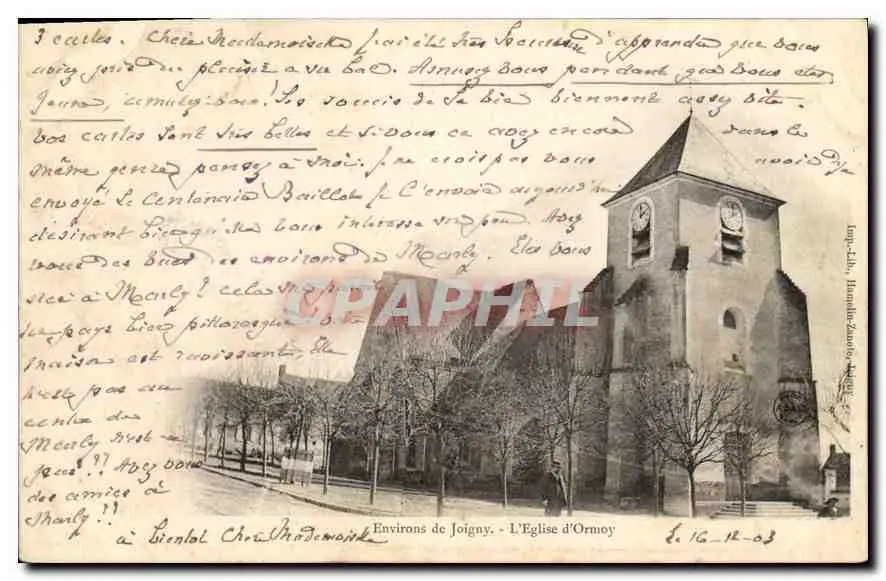 3 cartes. Chère Mademoiselle j'ai été très heureuse d'apprendre que vous
avez pris du plaisir a vu bal. Amusez vous pendant que vous etes
Jeune, amusez-vous! Les soucis de la vie viennent assez vite.
Vos cartes sont très belles et si vous en avez encore dans le
même genre pensez à moi. Je ne crois pas vous avoir
envoyé le Centenaire Baillot je l'envoie aujourd'hui
désirant bien qu'elle vous intéresse un peu. Avez
vous des vues des environs de Marly. Etes vous
à Marly? cela
pays bien pittoresque
maison est ravissante. Elle
n'est pas au
centre de
Marly n'est-ce
pas?? Avez vous
des amies à
Marly??
à bientôt Chère Mademoiselle
le 16-12-03
CPARAMA.COM
Environs de Joigny. - L'Eglise d'Ormoy
Imp.-Lib., Hamelin-Zanote, Joigny